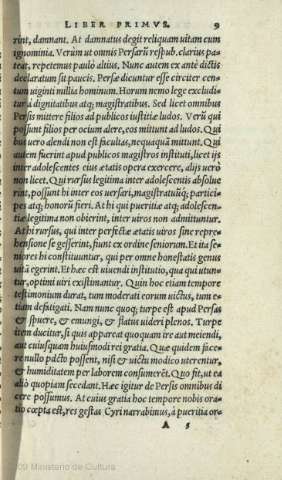 LIBER PRIMVS. 9
rint, damnant. At damnatus degit reliquam uitam cum
ignominia. Verùm ut omnis Persarũ respub. clarius pa=
teat, repetemus paulò altius. Nunc autem ex antè dictis
declaratum sit paucis. Persæ dicuntur esse circiter cen=
tum uiginti millia hominum. Horum nemo lege excludi=
tur à dignitatibus atq; magistratibus. Sed licet omnibus
Persis mittere filios ad publicos iustitiæ ludos. Verũ qui
possunt filios per ocium alere, eos mittunt ad ludos. Qui
bus uero alendi non est facultas, nequaquã mittunt. Qui
autem fuerint apud publicos magistros instituti, licet ijs
inter adolescentes eius ætatis opera exercere, alijs uerò
non licet. Qui rursus legitima inter adolescentis absolue
rint, possunt hi inter eos uersari, magistratuũq; partici=
pes atq; honorũ fieri. At hi qui pueritiæ atq; adolescen=
tiæ legitima non obierint, inter uiros non admittuntur.
At hi rursus, qui inter perfectæ ætatis uiros sine repre=
hensione se gesserint, fiunt ex ordine seniorum. Et ita se=
niores hi constituuntur, qui per omne honestatis genus
uitã egerint. Et hæc est uiuendi institutio, qua qui utun=
tur, optimi uiri existimantur. Quin hoc etiam tempore
testimonium durat, tum moderati eorum uictus, tum e=
tiam defatigati. Nam nunc quoq; turpe est apud Persas
& spuere, & emungi, & flatus uideri plenos. Turpe
item ducitur, si quis appareat quoquam ire aut meiendi,
aut cuiusquam huiusmodi rei gratia. Quæ quidem face=
re nullo pacto possent, nisi & uictu modico uterentur,
& humiditatem per laborem consumerẽt. Quo fit, ut ea
aliò quopiam secedant. Hæc igitur de Persis omnibus di
cere possumus. At cuius gratia hoc tempore nobis ora=
tio cœpta est, res gestas Cyri narrabimus, à pueritia or=
A 5
Ministerio de Cultura